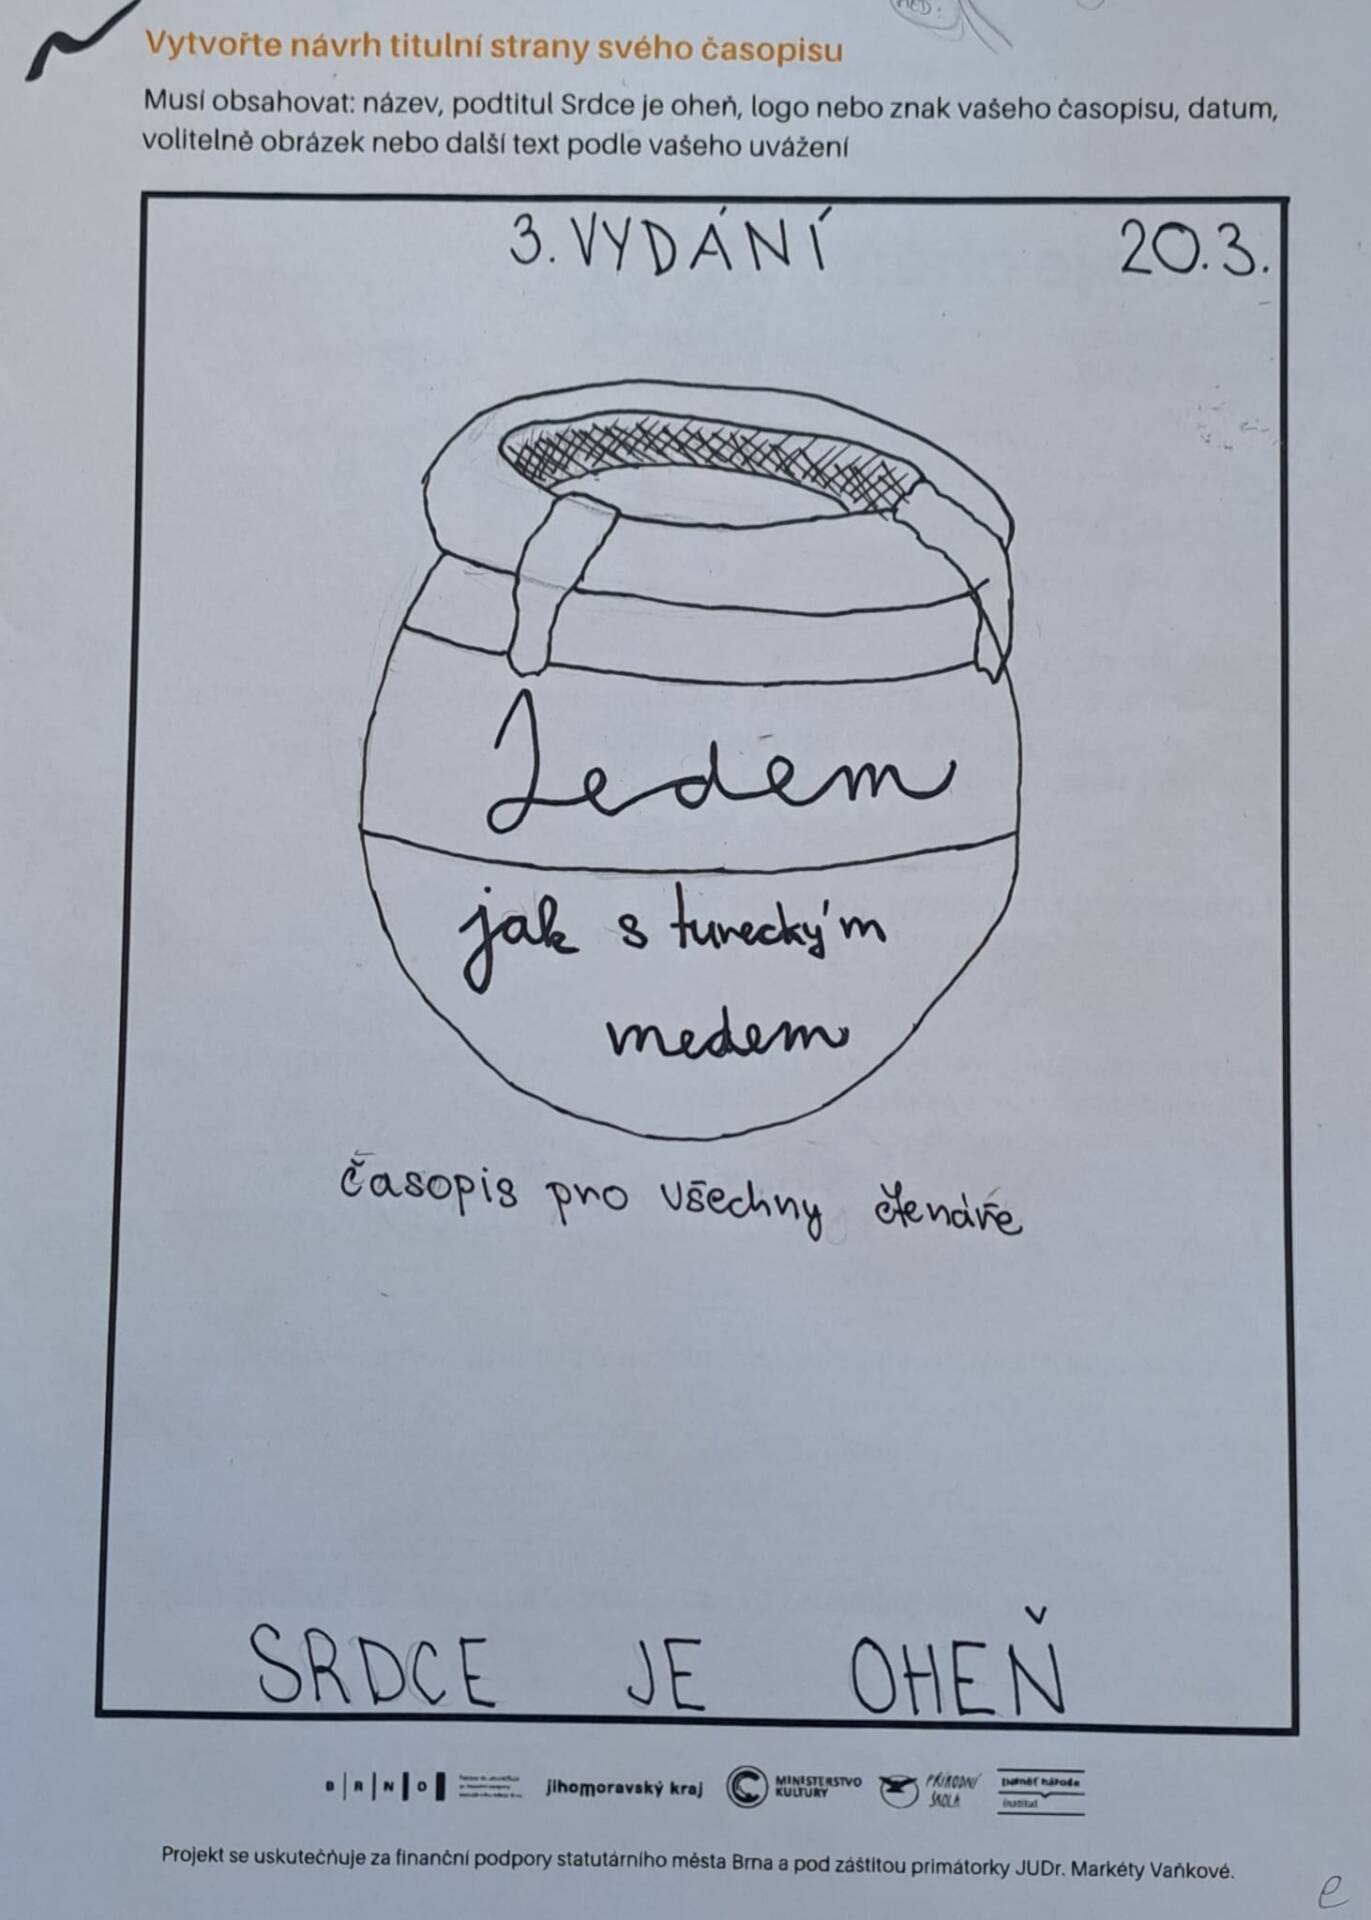 Vytvořte návrh titulní strany svého časopisu
Musí obsahovat: název, podtitul Srdce je oheň, logo nebo znak vašeho časopisu, datum,
volitelně obrázek nebo další text podle vašeho uvážení
3. VYDÁNÍ 20.3.
Jedem
jak s tureckým
medem
časopis pro všechny čtenáře
SRDCE JE OHEŇ
BRNO
jihomoravský kraj
MINISTERSTVO
KULTURY
PŘÍRODNÍ
ŠKOLA
paměť národa
institut
Projekt se uskutečňuje za finanční podpory statutárního města Brna a pod záštitou primátorky JUDr. Markéty Vaňkové.
e